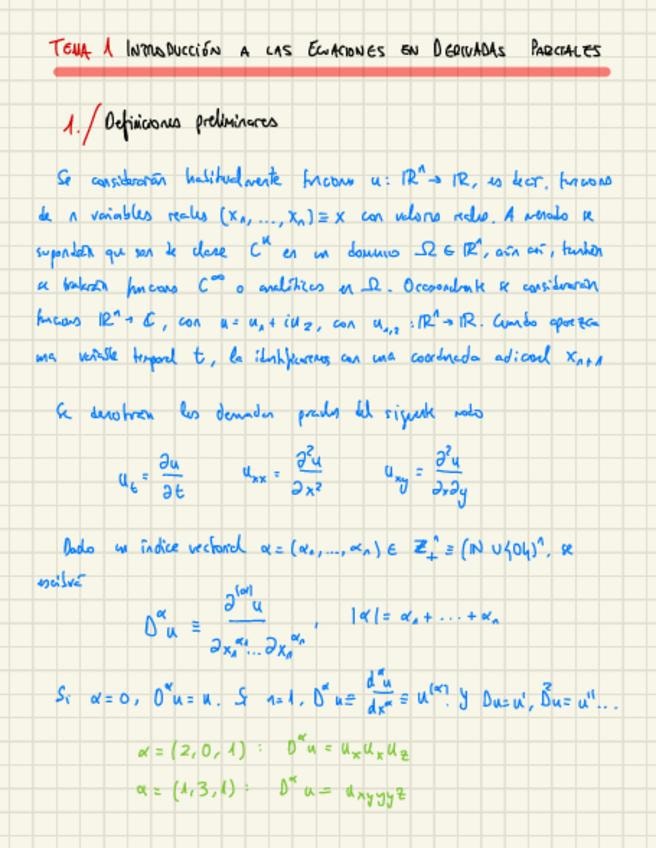 TEMA 1 INTRODUCCIÓN A LAS ECUACIONES EN DERIVADAS PARCIALES
1./ Definiciones preliminares
Se considerarán habitualmente funciones u: ℝⁿ → ℝ, es decir, funciones
de n variables reales (x₁, ..., xₙ) ≡ x con valores reales. A menudo se
supondrán que son de clase Cᵏ en un dominio Ω ∈ ℝⁿ, aún así, también
se tratarán funciones C^∞ o analíticas en Ω. Ocasionalmente se considerarán
funciones ℝⁿ → ℂ, con u = u₁ + iu₂, con u₁,₂ : ℝⁿ → ℝ. Cuando aparezca
una variable temporal t, la identificaremos con una coordenada adicional xₙ₊₁
Se denotarán las derivadas parciales del siguiente modo
u_t = ∂u/∂t u_xx = ∂²u/∂x² u_xy = ∂²u/∂x∂y
Dado un índice vectorial α = (α₁, ..., αₙ) ∈ ℤ₊ⁿ ≡ (ℕ ∪ {0})ⁿ, se
escribirá
D^α u ≡ ∂^|α| u / ∂x₁^α₁ ... ∂xₙ^αₙ , |α| = α₁ + ... + αₙ
Si α = 0, D^α u = u. Si n = 1, D^α u ≡ d^α u/dx^α ≡ u^(α). Y Du = u', D²u = u''...
α = (2, 0, 1) : D^α u = u_x u_x u_z
α = (1, 3, 1) : D^α u = u_xyyyz